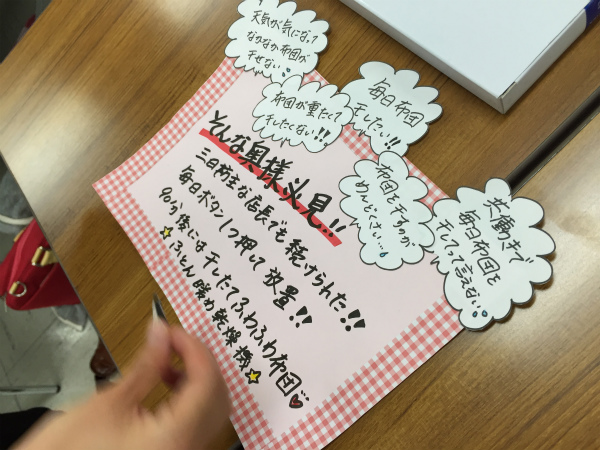 天気が気になって
なかなか布団が
干せない。
布団が重たくて
干したくない!!
毎日布団
干したい!!
布団を干すのが
めんどくさい…
共働きで
毎日布団を
干してって言えない。
そんな奥様必見!!
三日坊主な店長でも続けられた!!
毎日ボタン1つ押して放置!!
90分後には干したてふわふわ布団
☆ふとん暖か乾燥機☆